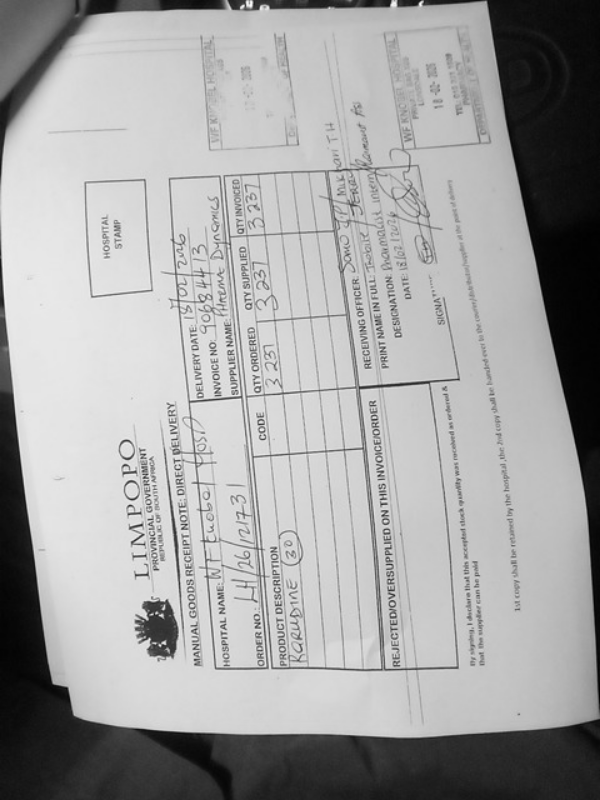 LIMPOPO
PROVINCIAL GOVERNMENT
REPUBLIC OF SOUTH AFRICA
HOSPITAL
STAMP
MANUAL GOODS RECEIPT NOTE: DIRECT DELIVERY
DELIVERY DATE: 18/02/2026
HOSPITAL NAME: WF Knobel Hosp
INVOICE NO: 90684413
ORDER NO.: L4/26/121731
SUPPLIER NAME: Pharma Dynamics
PRODUCT DESCRIPTION CODE QTY ORDERED QTY SUPPLIED QTY INVOICED
RARUDINE (30) 3 237 3 237 3 237
REJECTED/OVERSUPPLIED ON THIS INVOICE/ORDER
RECEIVING OFFICER:
PRINT NAME IN FULL:
DESIGNATION: Pharmacist intern
DATE: 18/02/2026
SIGNAT
WF KNOBEL HOSPITAL
WF KNOBEL HOSPITAL
18 -02- 2026
By signing, I declare that this accepted stock quantity was received as ordered &
that the supplier can be paid
1st copy shall be retained by the hospital ,the 2nd copy shall be handed over to the courier/distributor/supplier at the point of delivery